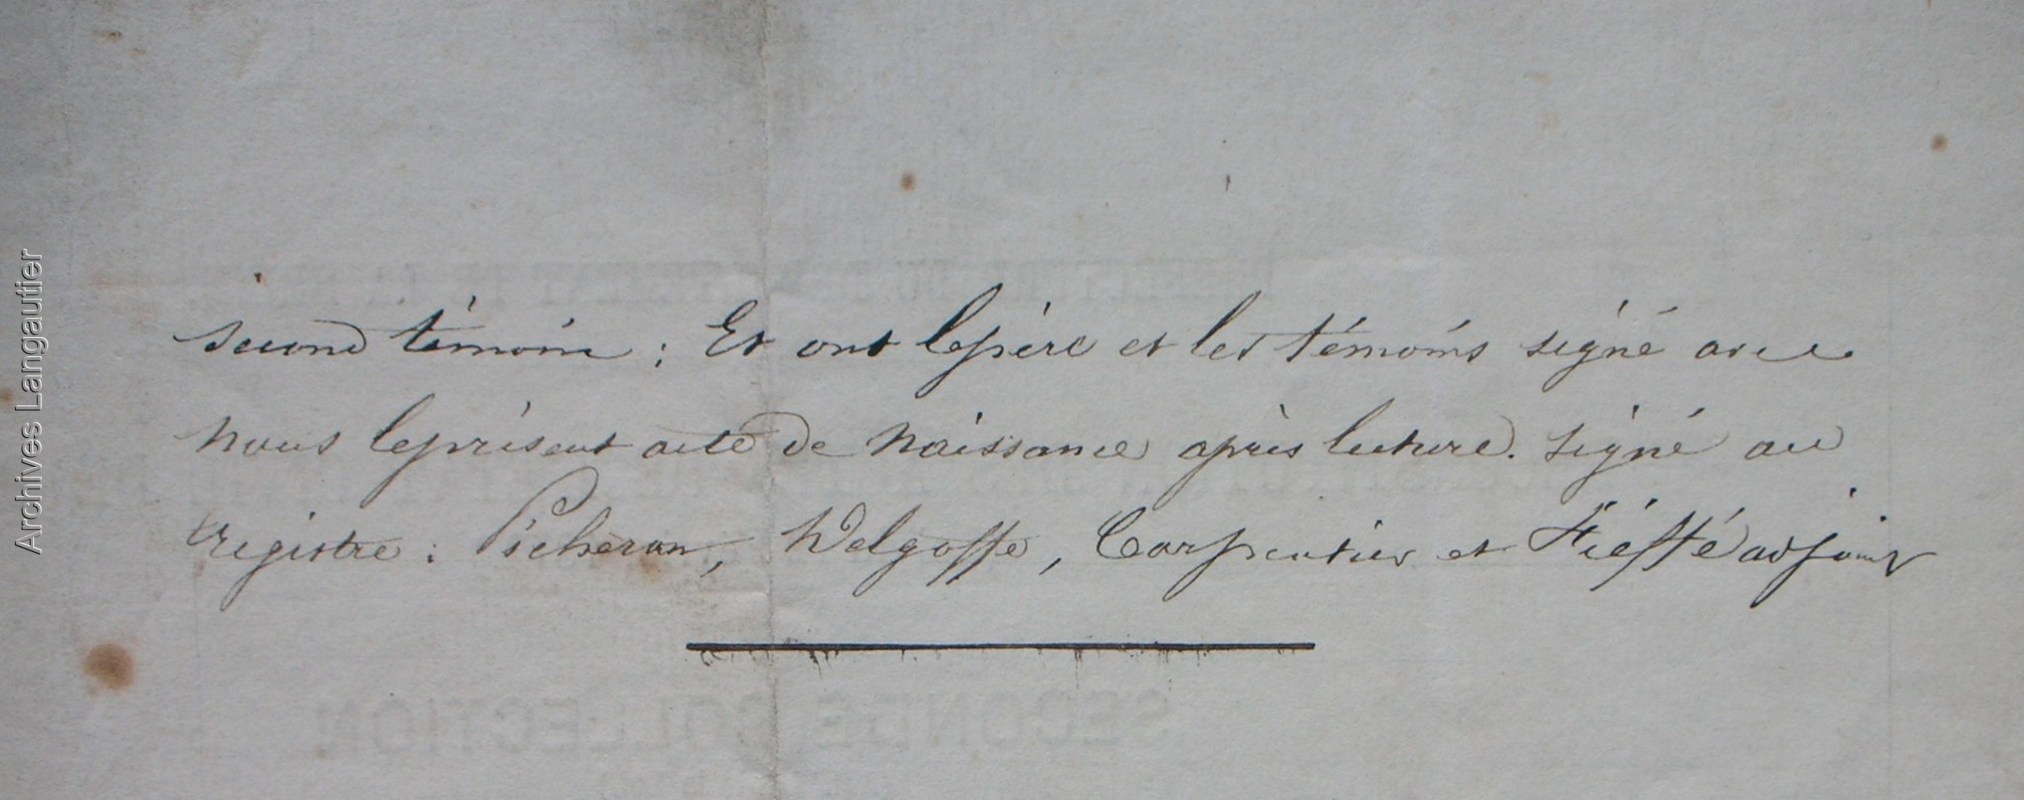 second témoin ; Et ont le père et les témoins signé avec
nous le présent acte de naissance après lecture. signé au
registre : Picheran, Delgoffe, Carpentier et Fieffé adjoint
SECONDE COLLECTION
Archives Langautier